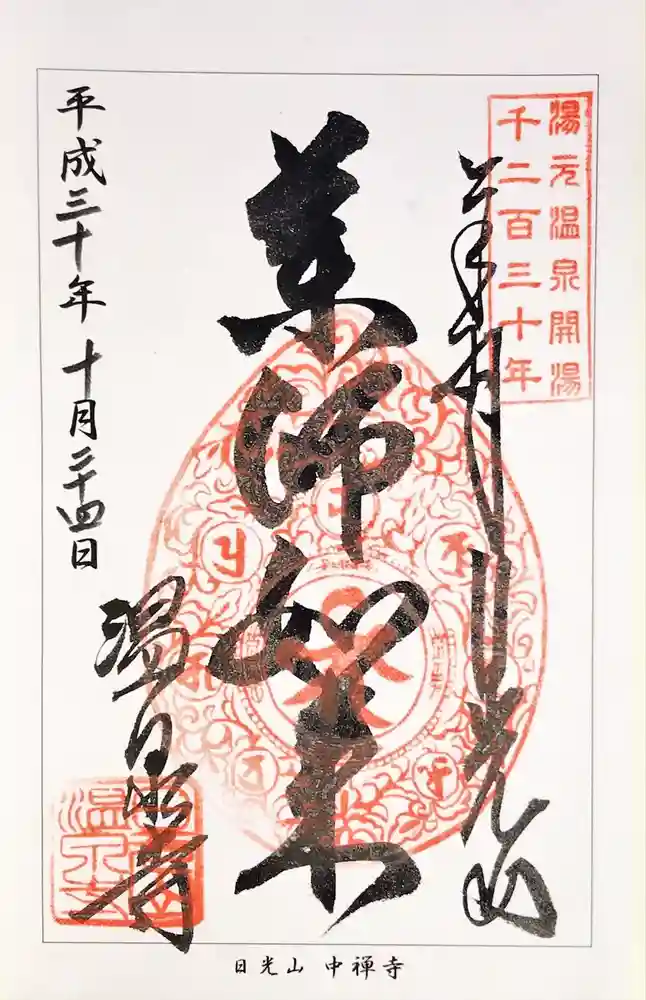 湯元温泉開湯
千二百三十年
奉拝
日光山
薬師如来
温泉寺
平成三十年 十月二十四日
日光山 中禅寺